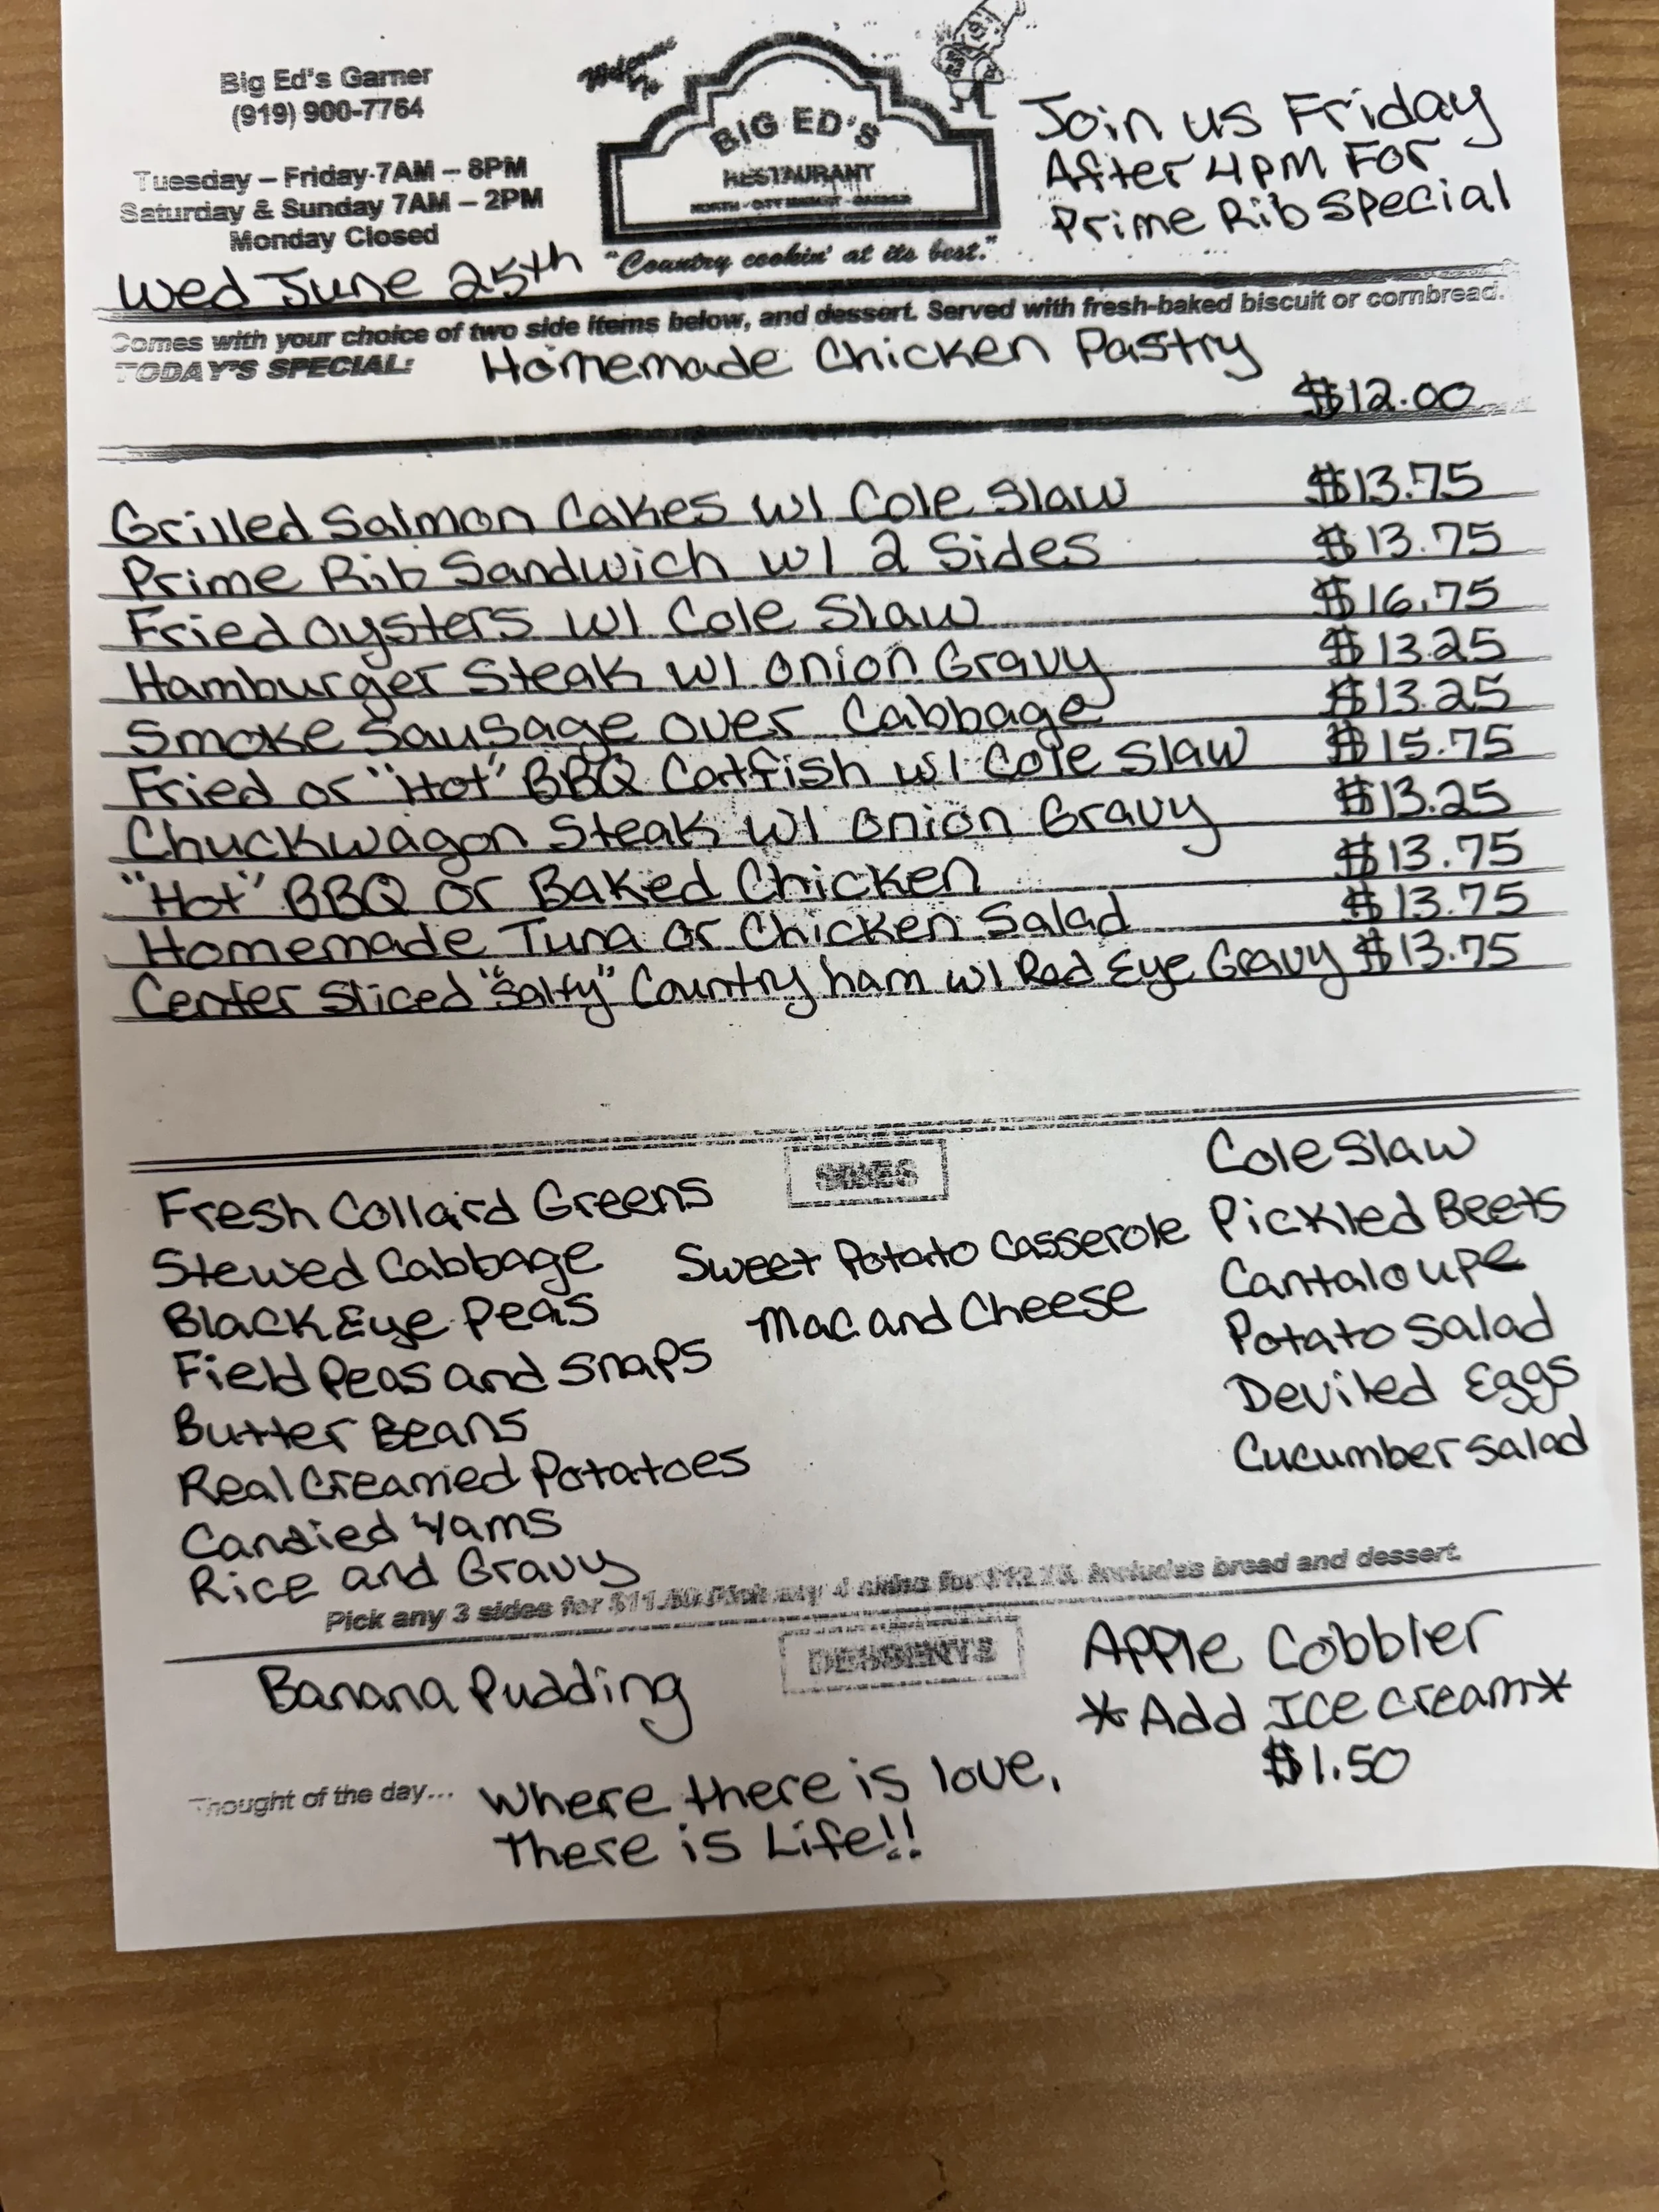 Big Ed's Garner
(919) 900-7764
Tuesday – Friday 7AM – 8PM
Saturday & Sunday 7AM – 2PM
Monday Closed
Welcome To
BIG ED'S
RESTAURANT
NORTH - CITY MARKET - GARNER
"Country cookin' at its best."
Join us Friday
After 4pm For
Prime Rib Special
Wed June 25th
Comes with your choice of two side items below, and dessert. Served with fresh-baked biscuit or cornbread.
TODAY'S SPECIAL: Homemade Chicken Pastry
$12.00
Grilled Salmon Cakes w/ Cole Slaw $13.75
Prime Rib Sandwich w/ 2 Sides $13.75
Fried Oysters w/ Cole Slaw $16.75
Hamburger Steak w/ Onion Gravy $13.25
Smoke Sausage over Cabbage $13.25
Fried or "Hot" BBQ Catfish w/ Cole Slaw $15.75
Chuckwagon Steak w/ Onion Gravy $13.25
"Hot" BBQ or Baked Chicken $13.75
Homemade Tuna or Chicken Salad $13.75
Center Sliced "Salty" Country ham w/ Red Eye Gravy $13.75
SIDES
Fresh Collard Greens
Stewed Cabbage
Black Eye Peas
Field Peas and Snaps
Butter Beans
Real Creamed Potatoes
Candied Yams
Rice and Gravy
Sweet Potato Casserole
Mac and Cheese
Cole Slaw
Pickled Beets
Cantaloupe
Potato Salad
Deviled Eggs
Cucumber Salad
Pick any 3 sides for $11.50 Pick any 4 sides for Includes bread and dessert.
DESSERTS
Banana Pudding
Apple Cobbler
*Add Ice cream*
$1.50
Thought of the day... Where there is love,
There is Life!!